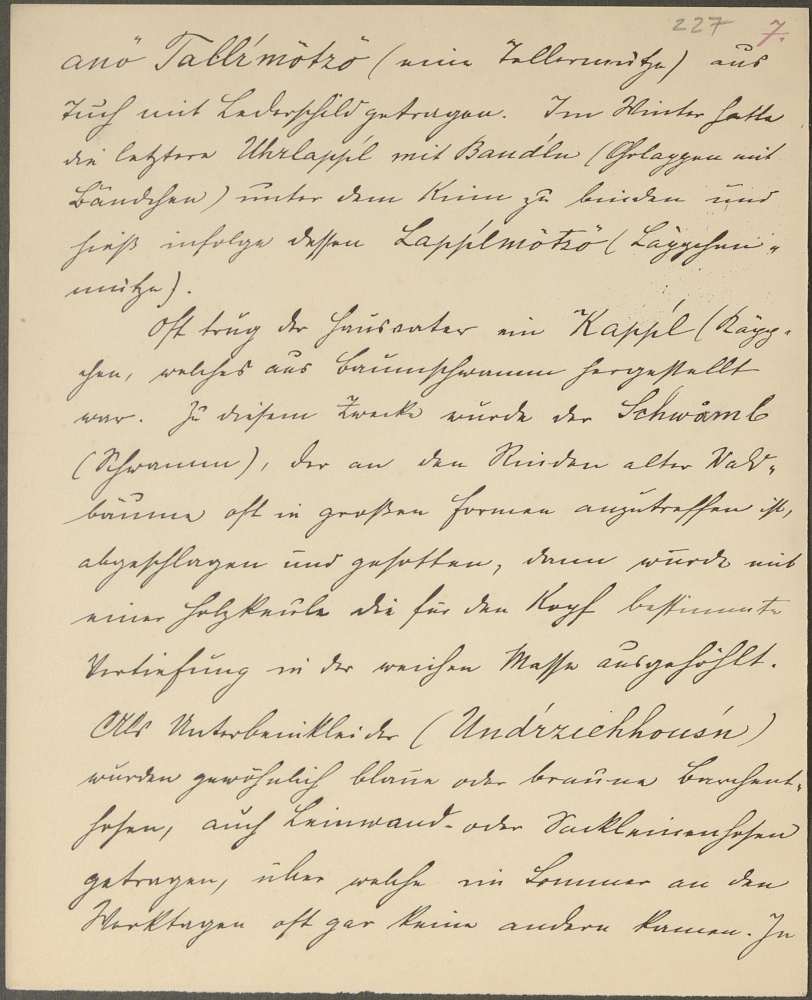 227 7.
anö Tallŕmötzö (eine Tellermütze) aus
Tuch mit Lederschild getragen. Im Winter hatte
die letztere Uhrlapṕl mit Band́ln (Ohrlappen mit
Bändchen) unter dem Kinn zu binden und
hieß infolge dessen Lapṕlmötzö (Läppchen-
mütze).
Oft trug der Hausvater ein Kapṕl (Käpp-
chen, welches aus Baumschwamm hergestellt
war. Zu diesem Zwecke wurde der Schwåmb
(Schwamm), der an den Rinden alter Wald-
bäume oft in großen Formen anzutreffen ist,
abgeschlagen und gesotten, dann wurde mit
einer Holzkeule die für den Kopf bestimmte
Vertiefung in der weichen Masse ausgehöhlt.
Als Unterbeinkleider (Und́rziehhouśn)
wurden gewöhnlich blaue oder braune Barchent-
hosen, auch Leinwand- oder Sackleinenhosen
getragen, über welche im Sommer an den
Werktagen oft gar keine andern kamen. In